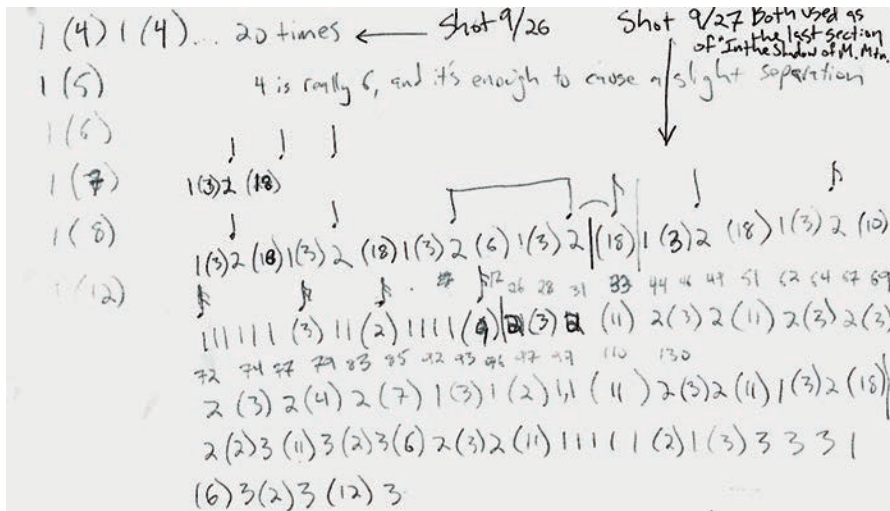 1 (4) 1 (4)... 20 times ← Shot 9/26 Shot 9/27 Both used as
the last section
of "In the Shadow of M. Mtn.
1 (5) 4 is really 6, and it's enough to cause a slight separation
1 (6)
1 (7) 1(3)2 (18)
1 (8)
1(3)2 (18)1(3)2 (18)1(3)2 (6)1(3)2 (18) 1(3)2 (18) 1(3)2 (10)
1 (12)
26 28 31 33 44 46 49 51 62 64 67 69
111111 (3) 11 (2) 1111 (9) 2 (3) 2 (11) 2(3)2(11) 2(3)2(3)
72 74 77 79 83 85 92 93 96 97 99 110 130
2 (3) 2(4) 2(7) 1(3)1(2)1,1 (11) 2(3)2(11) 1(3)2(18)
2(2)3(11)3(2)3(6)2(3)2(11)11111(2)1(3)3 3 3 1
(6)3(2)3(12)3